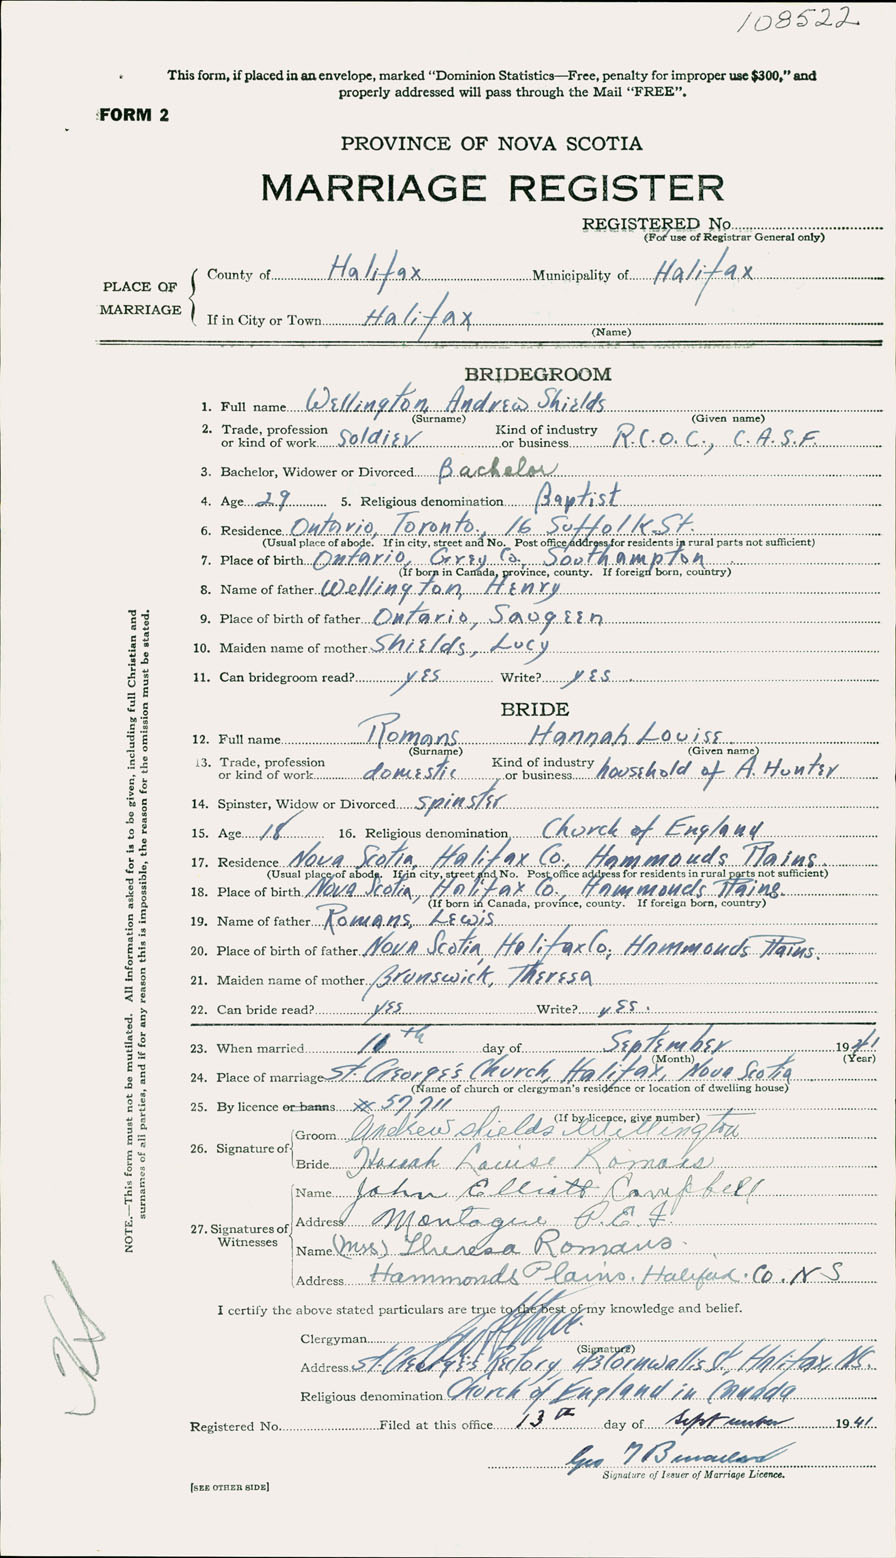 108522
This form, if placed in an envelope, marked "Dominion Statistics—Free, penalty for improper use $300," and
properly addressed will pass through the Mail "FREE".
FORM 2
PROVINCE OF NOVA SCOTIA
MARRIAGE REGISTER
REGISTERED No.
(For use of Registrar General only)
PLACE OF MARRIAGE
County of Halifax Municipality of Halifax
If in City or Town Halifax
(Name)
BRIDEGROOM
1. Full name Wellington, Andrew Shields
(Surname) (Given name)
2. Trade, profession or kind of work soldier Kind of industry or business R.C.O.C., C.A.S.F.
3. Bachelor, Widower or Divorced Bachelor
4. Age 29 5. Religious denomination Baptist
6. Residence Ontario, Toronto, 16 Suffolk St.
(Usual place of abode. If in city, street and No. Post office address for residents in rural parts not sufficient)
7. Place of birth Ontario, Grey Co., Southampton
(If born in Canada, province, county. If foreign born, country)
8. Name of father Wellington, Henry
9. Place of birth of father Ontario, Saugeen
10. Maiden name of mother Shields, Lucy
11. Can bridegroom read? yes Write? yes.
BRIDE
12. Full name Romans Hannah Louise
(Surname) (Given name)
13. Trade, profession or kind of work domestic Kind of industry or business household of A. Hunter
14. Spinster, Widow or Divorced spinster
15. Age 18 16. Religious denomination Church of England
17. Residence Nova Scotia, Halifax Co., Hammonds Plains.
(Usual place of abode. If in city, street and No. Post office address for residents in rural parts not sufficient)
18. Place of birth Nova Scotia, Halifax Co., Hammonds Plains.
(If born in Canada, province, county. If foreign born, country)
19. Name of father Romans, Lewis
20. Place of birth of father Nova Scotia, Halifax Co., Hammonds Plains.
21. Maiden name of mother Brunswick, Theresa
22. Can bride read? yes Write? yes.
23. When married 10th day of September 1941
(Month) (Year)
24. Place of marriage St. George's Church, Halifax, Nova Scotia
(Name of church or clergyman's residence or location of dwelling house)
25. By licence or banns # 57711
(If by licence, give number)
26. Signature of Groom Andrew Shields Wellington
Bride Hannah Louise Romans
27. Signatures of Witnesses Name John Elliott Campbell
Address Montague P.E.I.
Name (Mrs) Theresa Romans.
Address Hammonds Plains. Halifax. Co. N S
I certify the above stated particulars are true to the best of my knowledge and belief.
Clergyman
(Signature)
Address St. George's Rectory, Cornwallis St., Halifax, N.S.
Religious denomination Church of England in Canada
Registered No. Filed at this office 13th day of September 1941
Geo
Signature of Issuer of Marriage Licence.
[SEE OTHER SIDE]
NOTE.—This form must not be mutilated. All information asked for is to be given, including full Christian and
surnames of all parties, and if for any reason this is impossible, the reason for the omission must be stated.